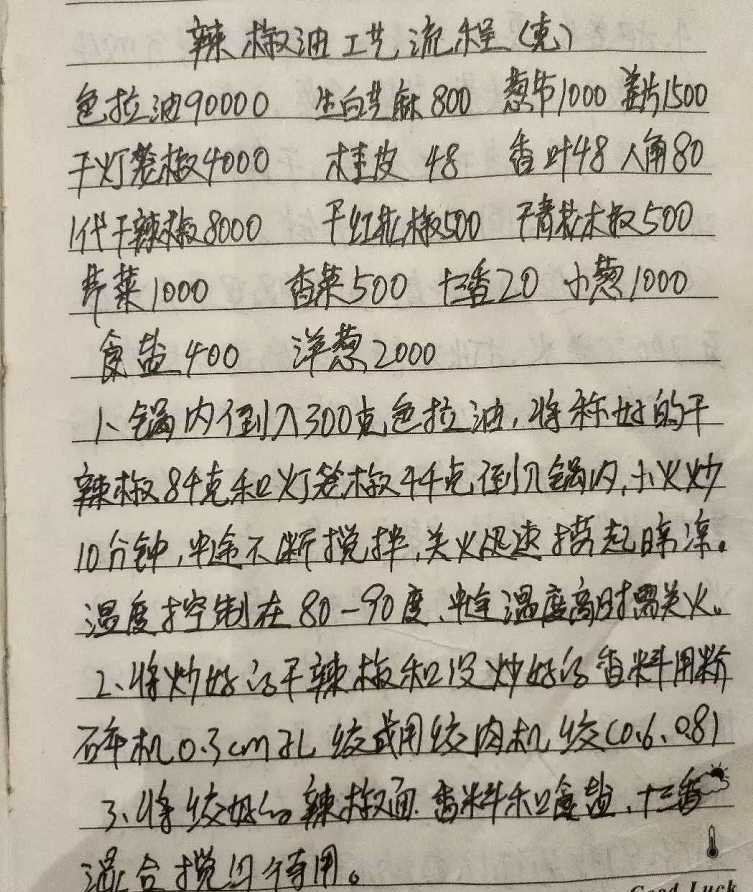 辣椒油工艺流程(克)
色拉油90000 生白芝麻800 葱节1000 姜片1500
干灯笼椒4000 桂皮48 香叶48 八角80
1代干辣椒8000 干红花椒500 干青花椒500
芹菜1000 香菜500 十三香20 小葱1000
食盐400 洋葱2000
1、锅内倒入300克色拉油,将称好的干
辣椒8千克和灯笼椒4千克倒入锅内,小火炒
10分钟,中途不断搅拌,关火迅速捞起晾凉。
温度控制在80-90度、中途温度高时需关火。
2、将炒好的干辣椒和没炒好的香料用粉
碎机0.3cm孔绞或用绞肉机绞(0.6、0.8)
3、将绞好的辣椒面.香料和食盐、十三香
混合搅匀待用。
Good Luck